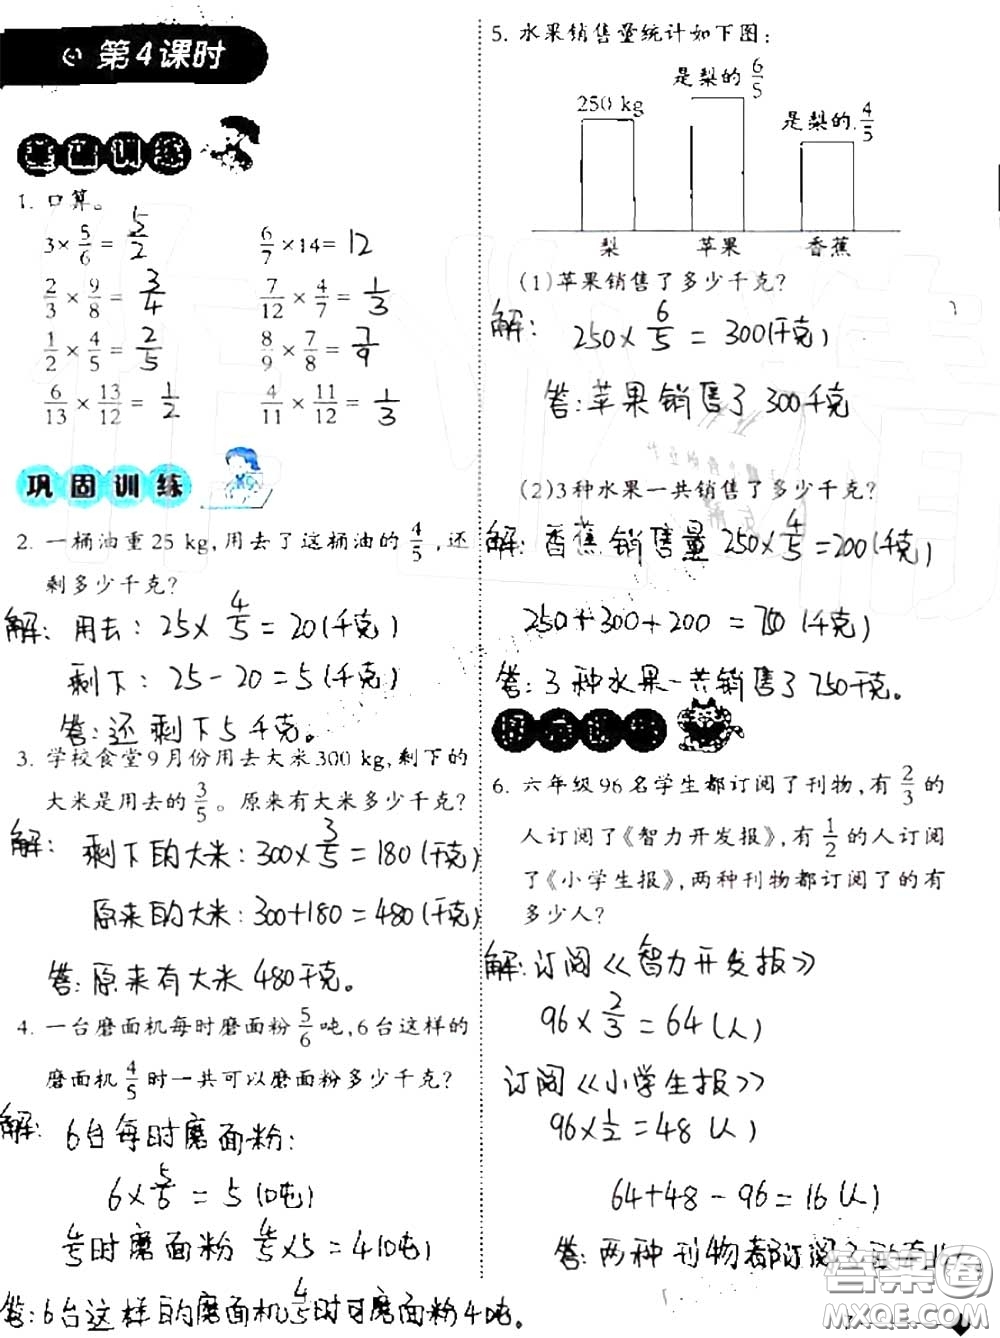 第4课时
基础训练
1. 口算。
3×5/6=5/2    6/7×14=12
2/3×9/8=3/4    7/12×4/7=1/3
1/2×4/5=2/5    8/9×7/8=7/9
6/13×13/12=1/2    4/11×11/12=1/3
巩固训练
2. 一桶油重25 kg,用去了这桶油的4/5,还
剩多少千克?
解:用去:25×4/5=20(千克)
剩下:25-20=5(千克)
答:还剩下5千克。
3. 学校食堂9月份用去大米300 kg,剩下的
大米是用去的3/5。原来有大米多少千克?
解:剩下的大米:300×3/5=180(千克)
原来的大米:300+180=480(千克)
答:原来有大米480千克。
4. 一台磨面机每时磨面粉5/6吨,6台这样的
磨面机4/5时一共可以磨面粉多少千克?
解:6台每时磨面粉:
6×5/6=5(吨)
4/5时磨面粉4/5×5=4(吨)
答:6台这样的磨面机4/5时可磨面粉4吨。
5. 水果销售量统计如下图:
250 kg
是梨的6/5
是梨的4/5
梨 苹果 香蕉
(1)苹果销售了多少千克?
解:250×6/5=300(千克)
答:苹果销售了300千克
(2)3种水果一共销售了多少千克?
解:香蕉销售量250×4/5=200(千克)
250+300+200=750(千克)
答:3种水果一共销售了750千克。
6. 六年级96名学生都订阅了刊物,有2/3的
人订阅了《智力开发报》,有1/2的人订阅
了《小学生报》,两种刊物都订阅了的有
多少人?
解:订阅《智力开发报》
96×2/3=64(人)
订阅《小学生报》
96×1/2=48(人)
64+48-96=16(人)
答:两种刊物都订阅了的有16人
答案圈
MXQE.COM